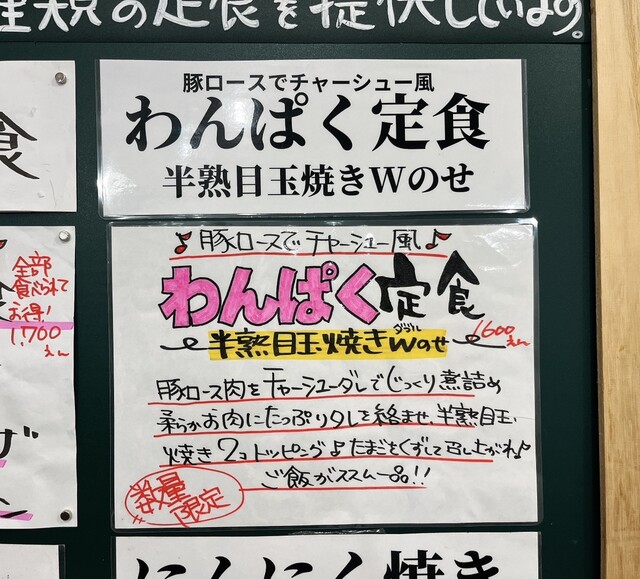 の定食を提供しています。
食
豚ロースでチャーシュー風
わんぱく定食
半熟目玉焼きWのせ
全部
食べられて
お得!
1,700
えん
♪豚ロースでチャーシュー風♪
わんぱく定食
半熟目玉焼きWのせ
ダブル
1600
えん
豚ロース肉をチャーシューダレでじっくり煮詰め
柔らかお肉にたっぷりタレを絡ませ、半熟目玉
焼き2コトッピング♪たまごをくずして召し上がれ♪
ご飯がススム一品!!
数量
限定
げ
にんにく焼き